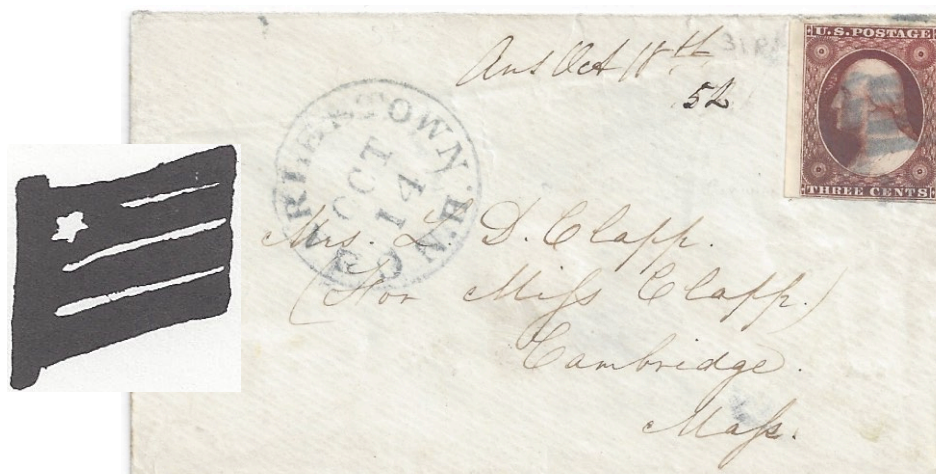 Ans Oct 18th
52
U.S. POSTAGE
THREE CENTS
CHARLESTOWN. N.H.
OCT
14
Mrs. L. D. Clapp.
(For Miſs Clapp.)
Cambridge.
Maſs.